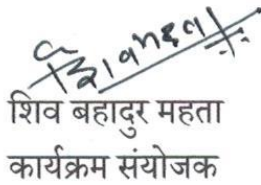 शिव बहादुर महता
कार्यक्रम संयोजक